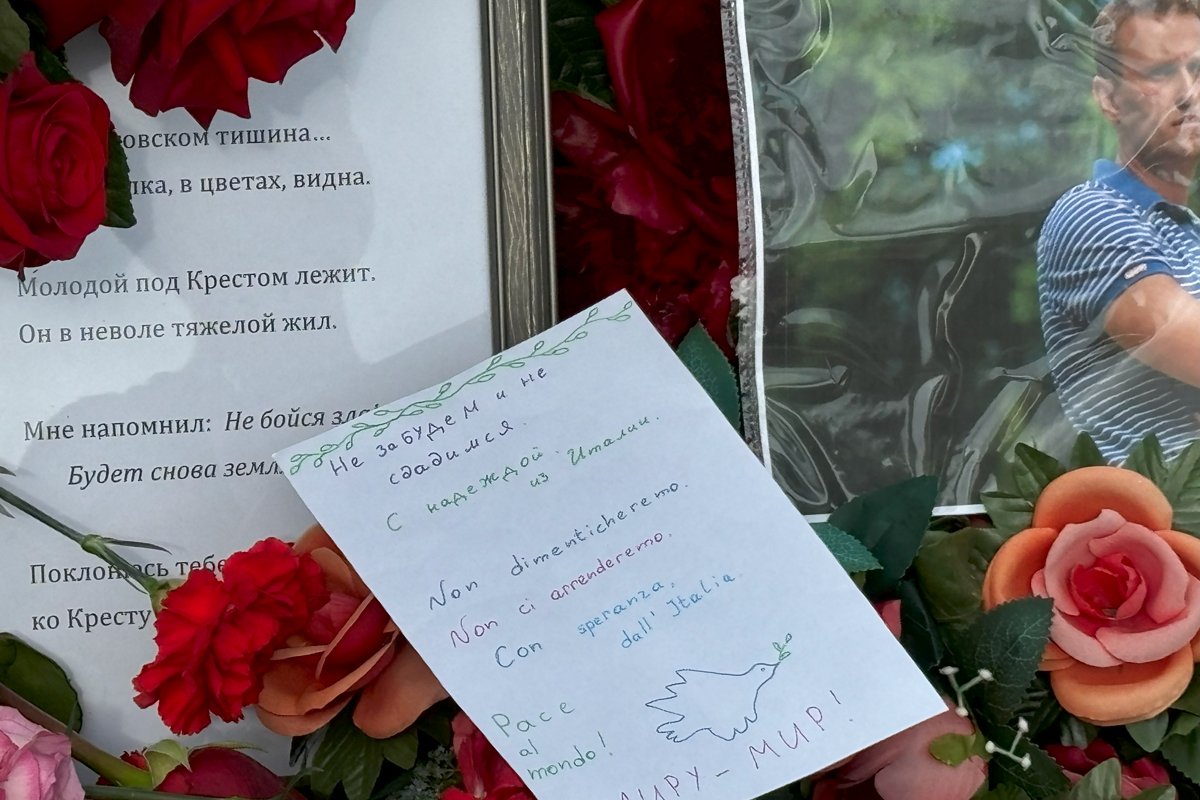 тишина...
в цветах, видна.
Молодой под Крестом лежит.
Он в неволе тяжелой жил.
Мне напомнил: Не бойся
Будет снова
Поклонюсь тебе
ко Кресту
Не забудем и не
сдадимся.
С надеждой.
из Италии.
Non dimenticheremo.
Non ci arrenderemo.
Con speranza,
dall' Italia.
Pace
al
mondo!
МИРУ – МИР!